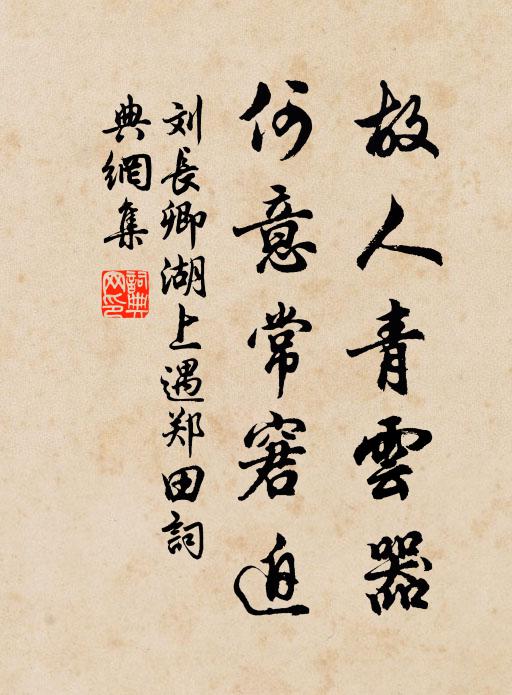 故人青雲器
何意常窘迫
刘長卿湖上遇郑田詞
典網集
詞典
网印